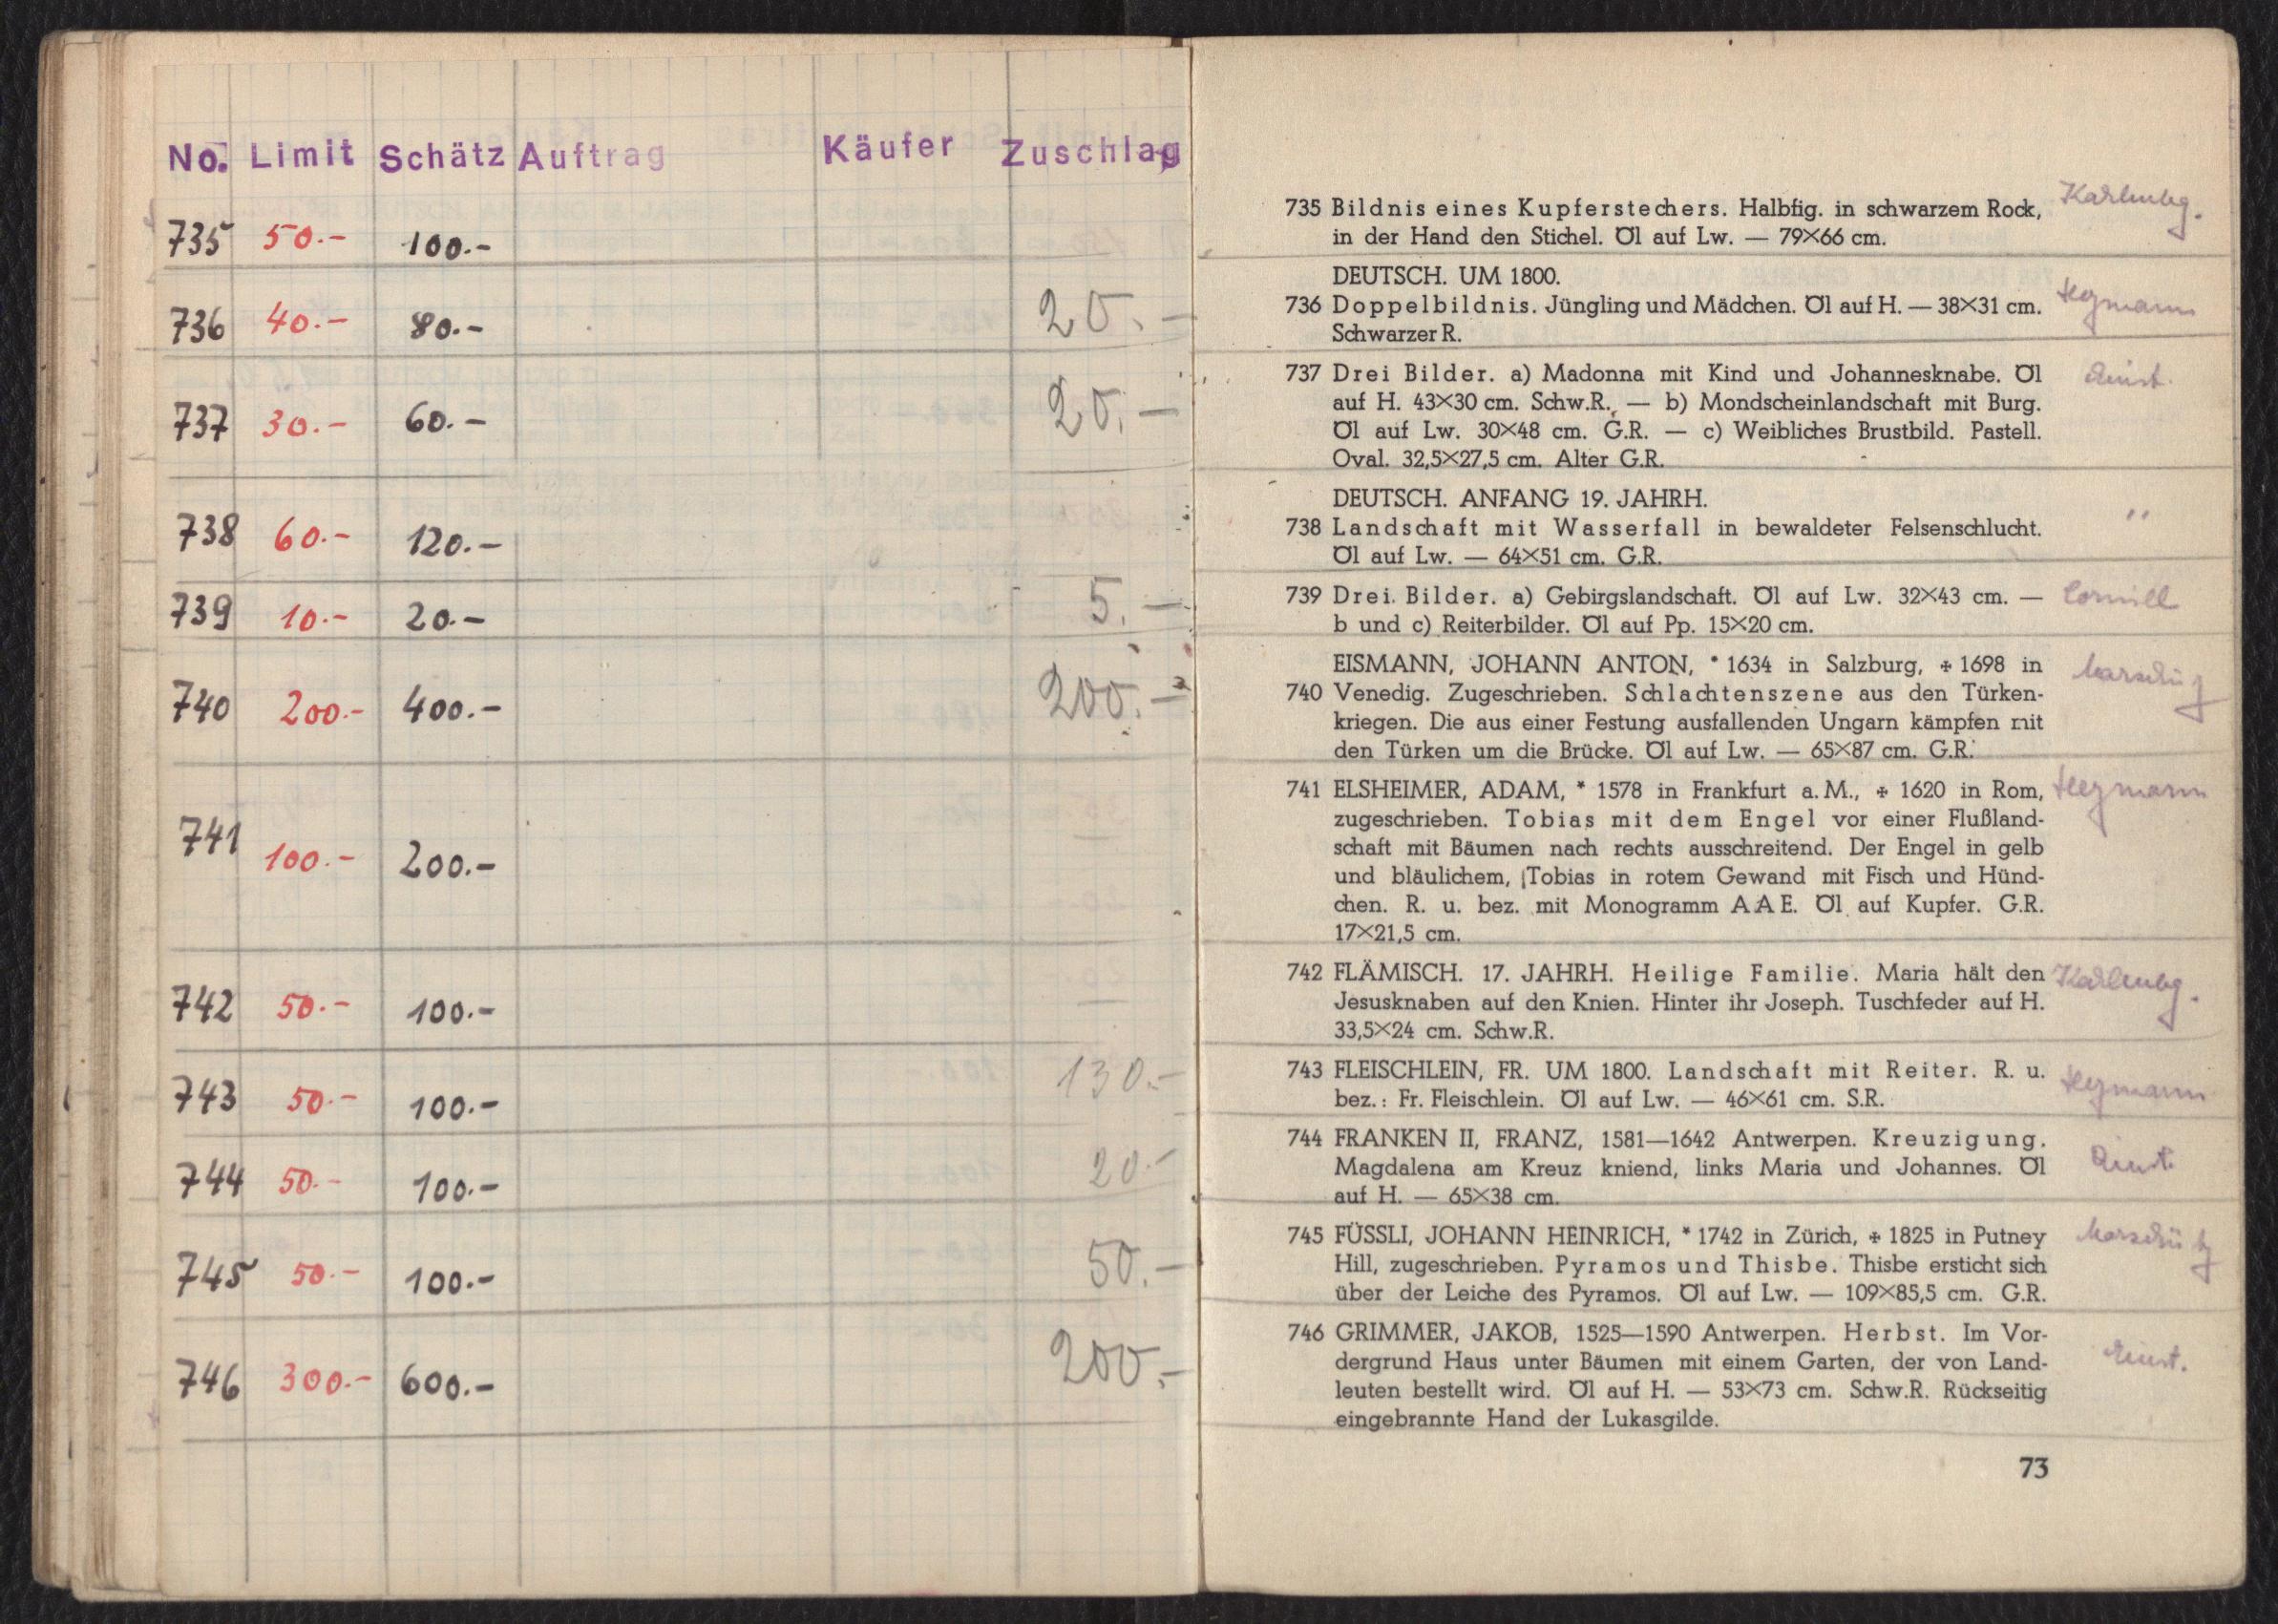 No. Limit Schätz Auftrag Käufer Zuschlag
735 50.- 100.-
736 40.- 80.- 20.-
737 30.- 60.- 20.-
738 60.- 120.-
739 10.- 20.- 5.-
740 200.- 400.- 200.-
741 100.- 200.-
742 50.- 100.-
743 50.- 100.- 130.-
744 50.- 100.- 20.-
745 50.- 100.- 50.-
746 300.- 600.- 200.-
735 Bildnis eines Kupferstechers. Halbfig. in schwarzem Rock,
in der Hand den Stichel. Öl auf Lw. — 79×66 cm.
DEUTSCH. UM 1800.
736 Doppelbildnis. Jüngling und Mädchen. Öl auf H. — 38×31 cm.
Schwarzer R.
737 Drei Bilder. a) Madonna mit Kind und Johannesknabe. Öl
auf H. 43×30 cm. Schw.R. — b) Mondscheinlandschaft mit Burg.
Öl auf Lw. 30×48 cm. G.R. — c) Weibliches Brustbild. Pastell.
Oval. 32,5×27,5 cm. Alter G.R.
DEUTSCH. ANFANG 19. JAHRH.
738 Landschaft mit Wasserfall in bewaldeter Felsenschlucht. "
Öl auf Lw. — 64×51 cm. G.R.
739 Drei Bilder. a) Gebirgslandschaft. Öl auf Lw. 32×43 cm. — Cornill
b und c) Reiterbilder. Öl auf Pp. 15×20 cm.
EISMANN, JOHANN ANTON, * 1634 in Salzburg, ✠ 1698 in
740 Venedig. Zugeschrieben. Schlachtenszene aus den Türken-
kriegen. Die aus einer Festung ausfallenden Ungarn kämpfen mit
den Türken um die Brücke. Öl auf Lw. — 65×87 cm. G.R.
741 ELSHEIMER, ADAM, * 1578 in Frankfurt a. M., ✠ 1620 in Rom,
zugeschrieben. Tobias mit dem Engel vor einer Flußland-
schaft mit Bäumen nach rechts ausschreitend. Der Engel in gelb
und bläulichem, Tobias in rotem Gewand mit Fisch und Hünd-
chen. R. u. bez. mit Monogramm A A E. Öl auf Kupfer. G.R.
17×21,5 cm.
742 FLÄMISCH. 17. JAHRH. Heilige Familie. Maria hält den
Jesusknaben auf den Knien. Hinter ihr Joseph. Tuschfeder auf H.
33,5×24 cm. Schw.R.
743 FLEISCHLEIN, FR. UM 1800. Landschaft mit Reiter. R. u.
bez.: Fr. Fleischlein. Öl auf Lw. — 46×61 cm. S.R.
744 FRANKEN II, FRANZ, 1581—1642 Antwerpen. Kreuzigung.
Magdalena am Kreuz kniend, links Maria und Johannes. Öl
auf H. — 65×38 cm.
745 FÜSSLI, JOHANN HEINRICH, * 1742 in Zürich, ✠ 1825 in Putney
Hill, zugeschrieben. Pyramos und Thisbe. Thisbe ersticht sich
über der Leiche des Pyramos. Öl auf Lw. — 109×85,5 cm. G.R.
746 GRIMMER, JAKOB, 1525—1590 Antwerpen. Herbst. Im Vor-
dergrund Haus unter Bäumen mit einem Garten, der von Land-
leuten bestellt wird. Öl auf H. — 53×73 cm. Schw.R. Rückseitig
eingebrannte Hand der Lukasgilde.
73